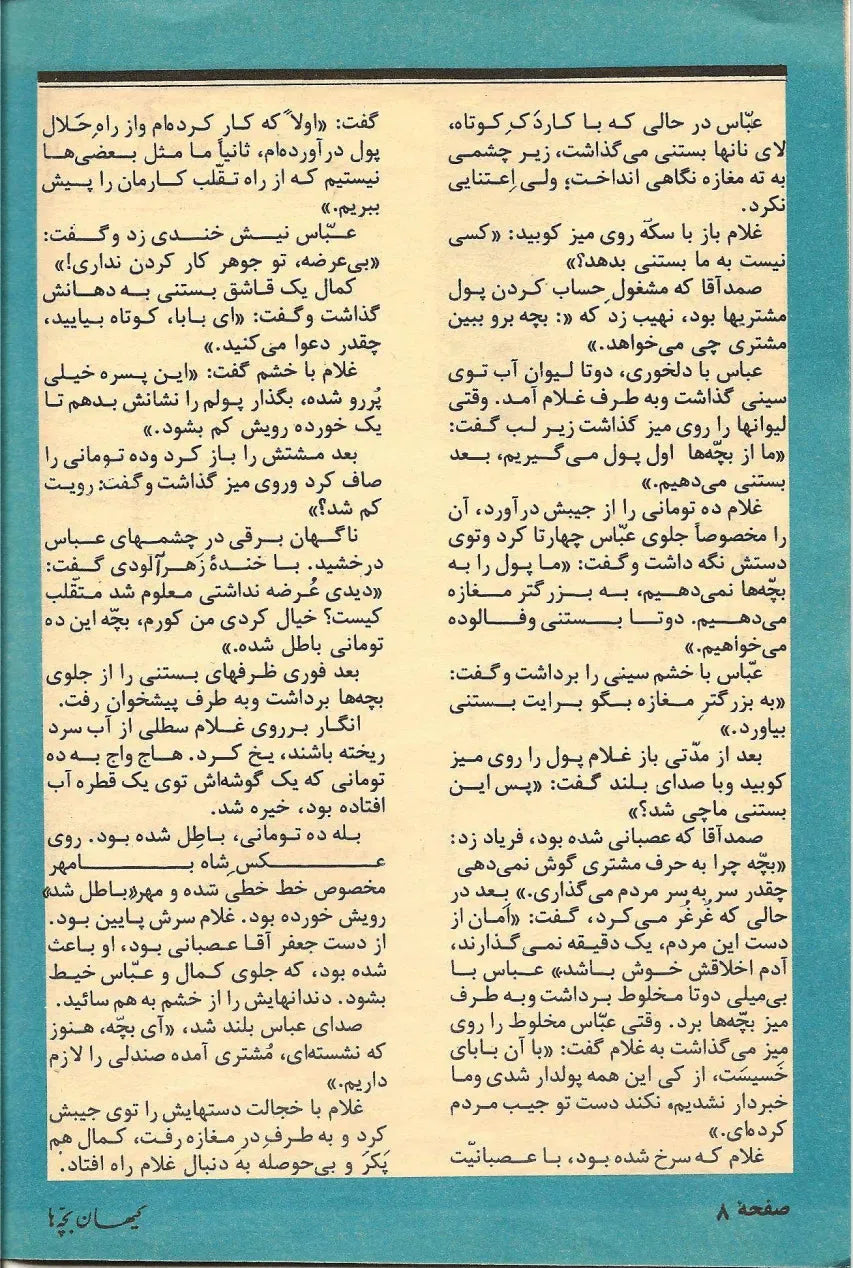 عبّاس در حالی که با کاردَکِ کوتاه،
لای نانها بستنی می‌گذاشت، زیر چشمی
به ته مغازه نگاهی انداخت؛ ولی اِعتنایی
نکرد.
غلام باز با سکّه روی میز کوبید: «کسی
نیست به ما بستنی بدهد؟»
صمدآقا که مشغول حساب کردن پول
مشتریها بود، نهیب زد که «: بچه برو ببین
مشتری چی می‌خواهد.»
عباس با دلخوری، دوتا لیوان آب توی
سینی گذاشت وبه طرف غلام آمد. وقتی
لیوانها را روی میز گذاشت زیر لب گفت:
«ما از بچّه‌ها اول پول می‌گیریم، بعد
بستنی می‌دهیم.»
غلام ده تومانی را از جیبش درآورد، آن
را مخصوصاً جلوی عبّاس چهارتا کرد وتوی
دستش نگه داشت وگفت: «ما پول را به
بچّه‌ها نمی‌دهیم، به بزرگتر مغازه
می‌دهیم. دوتا بستنی وفالوده
می‌خواهیم.»
عبّاس با خشم سینی را برداشت وگفت:
«به بزرگترِ مغازه بگو برایت بستنی
بیاورد.»
بعد از مدّتی باز غلام پول را روی میز
کوبید وبا صدای بلند گفت: «پس این
بستنی ماچی شد؟»
صمدآقا که عصبانی شده بود، فریاد زد:
«بچّه چرا به حرف مشتری گوش نمی‌دهی
چقدر سر به سر مردم می‌گذاری.» بعد در
حالی که غُرغُر می‌کرد، گفت: «اَمان از
دست این مردم، یک دقیقه نمی‌گذارند،
آدم اخلاقش خوش باشد» عباس با
بی‌میلی دوتا مخلوط برداشت وبه طرف
میز بچّه‌ها برد. وقتی عبّاس مخلوط را روی
میز می‌گذاشت به غلام گفت: «با آن بابای
خَسیسَت، از کی این همه پولدار شدی وما
خبردار نشدیم، نکند دست تو جیب مردم
کرده‌ای.»
غلام که سرخ شده بود، با عصبانیّت
گفت: «اولاً که کار کرده‌ام واز راهِ حَلال
پول درآورده‌ام، ثانیاً ما مثل بعضی‌ها
نیستیم که از راه تقّلب کارمان را پیش
ببریم.»
عبّاس نیش خندی زد وگفت:
«بی‌عرضه، تو جوهر کار کردن نداری!»
کمال یک قاشق بستنی به دهانش
گذاشت وگفت: «ای بابا، کوتاه بیایید،
چقدر دعوا می‌کنید.»
غلام با خشم گفت: «این پسره خیلی
پُررو شده، بگذار پولم را نشانش بدهم تا
یک خورده رویش کم بشود.»
بعد مشتش را باز کرد وده تومانی را
صاف کرد وروی میز گذاشت وگفت: رویت
کم شد؟»
ناگهان برقی در چشمهای عباس
درخشید. با خندهٔ زَهرآلودی گفت:
«دیدی عُرضه نداشتی معلوم شد متقّلب
کیست؟ خیال کردی من کورم، بچّه این ده
تومانی باطل شده.»
بعد فوری ظرفهای بستنی را از جلوی
بچه‌ها برداشت وبه طرف پیشخوان رفت.
انگار برروی غلام سطلی از آب سرد
ریخته باشند، یخ کرد. هاج واج به ده
تومانی که یک گوشه‌اش توی یک قطره آب
افتاده بود، خیره شد.
بله ده تومانی، باطِل شده بود. روی
عکسِ شاه بامهر
مخصوص خط خطی شده و مهر«باطل شد»
رویش خورده بود. غلام سرش پایین بود.
از دست جعفر آقا عصبانی بود، او باعث
شده بود، که جلوی کمال و عبّاس خیط
بشود. دندانهایش را از خشم به هم سائید.
صدای عباس بلند شد، «آی بچّه، هنوز
که نشسته‌ای، مُشتری آمده صندلی را لازم
داریم.»
غلام با خجالت دستهایش را توی جیبش
کرد و به طرفِ در مغازه رفت، کمال هم
پَکَر و بی‌حوصله به دنبال غلام راه افتاد.
صفحهٔ ۸
کیهان بچّه‌ها